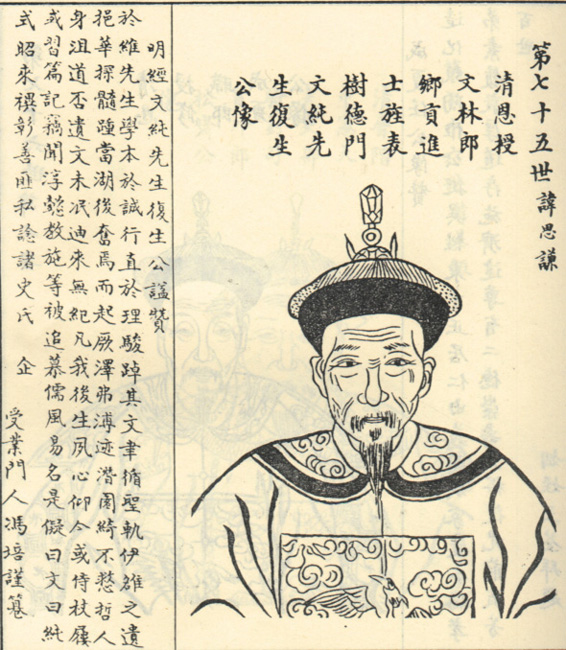 第七十五世諱思謙
清恩授
文林郎
鄉貢進
士旌表
樹德門
文純先
生復生
公像
明經文純先生復生公謚贊
於維先生學本於誠行直於理駿踔其文聿循聖軌伊雒之遺
挹華探髓踵當湖後奮焉而起厥澤弗溥迹潛園綺不憖哲人
身沮道否遺文未泯迪來無紀凡我後生夙心仰今或侍杖屨
或習篇記竊聞淳懿教施等被追慕儒風易名是儗曰文曰純
式昭來禩彰善匪私諗諸史氏 企
受業門人馮培謹篹